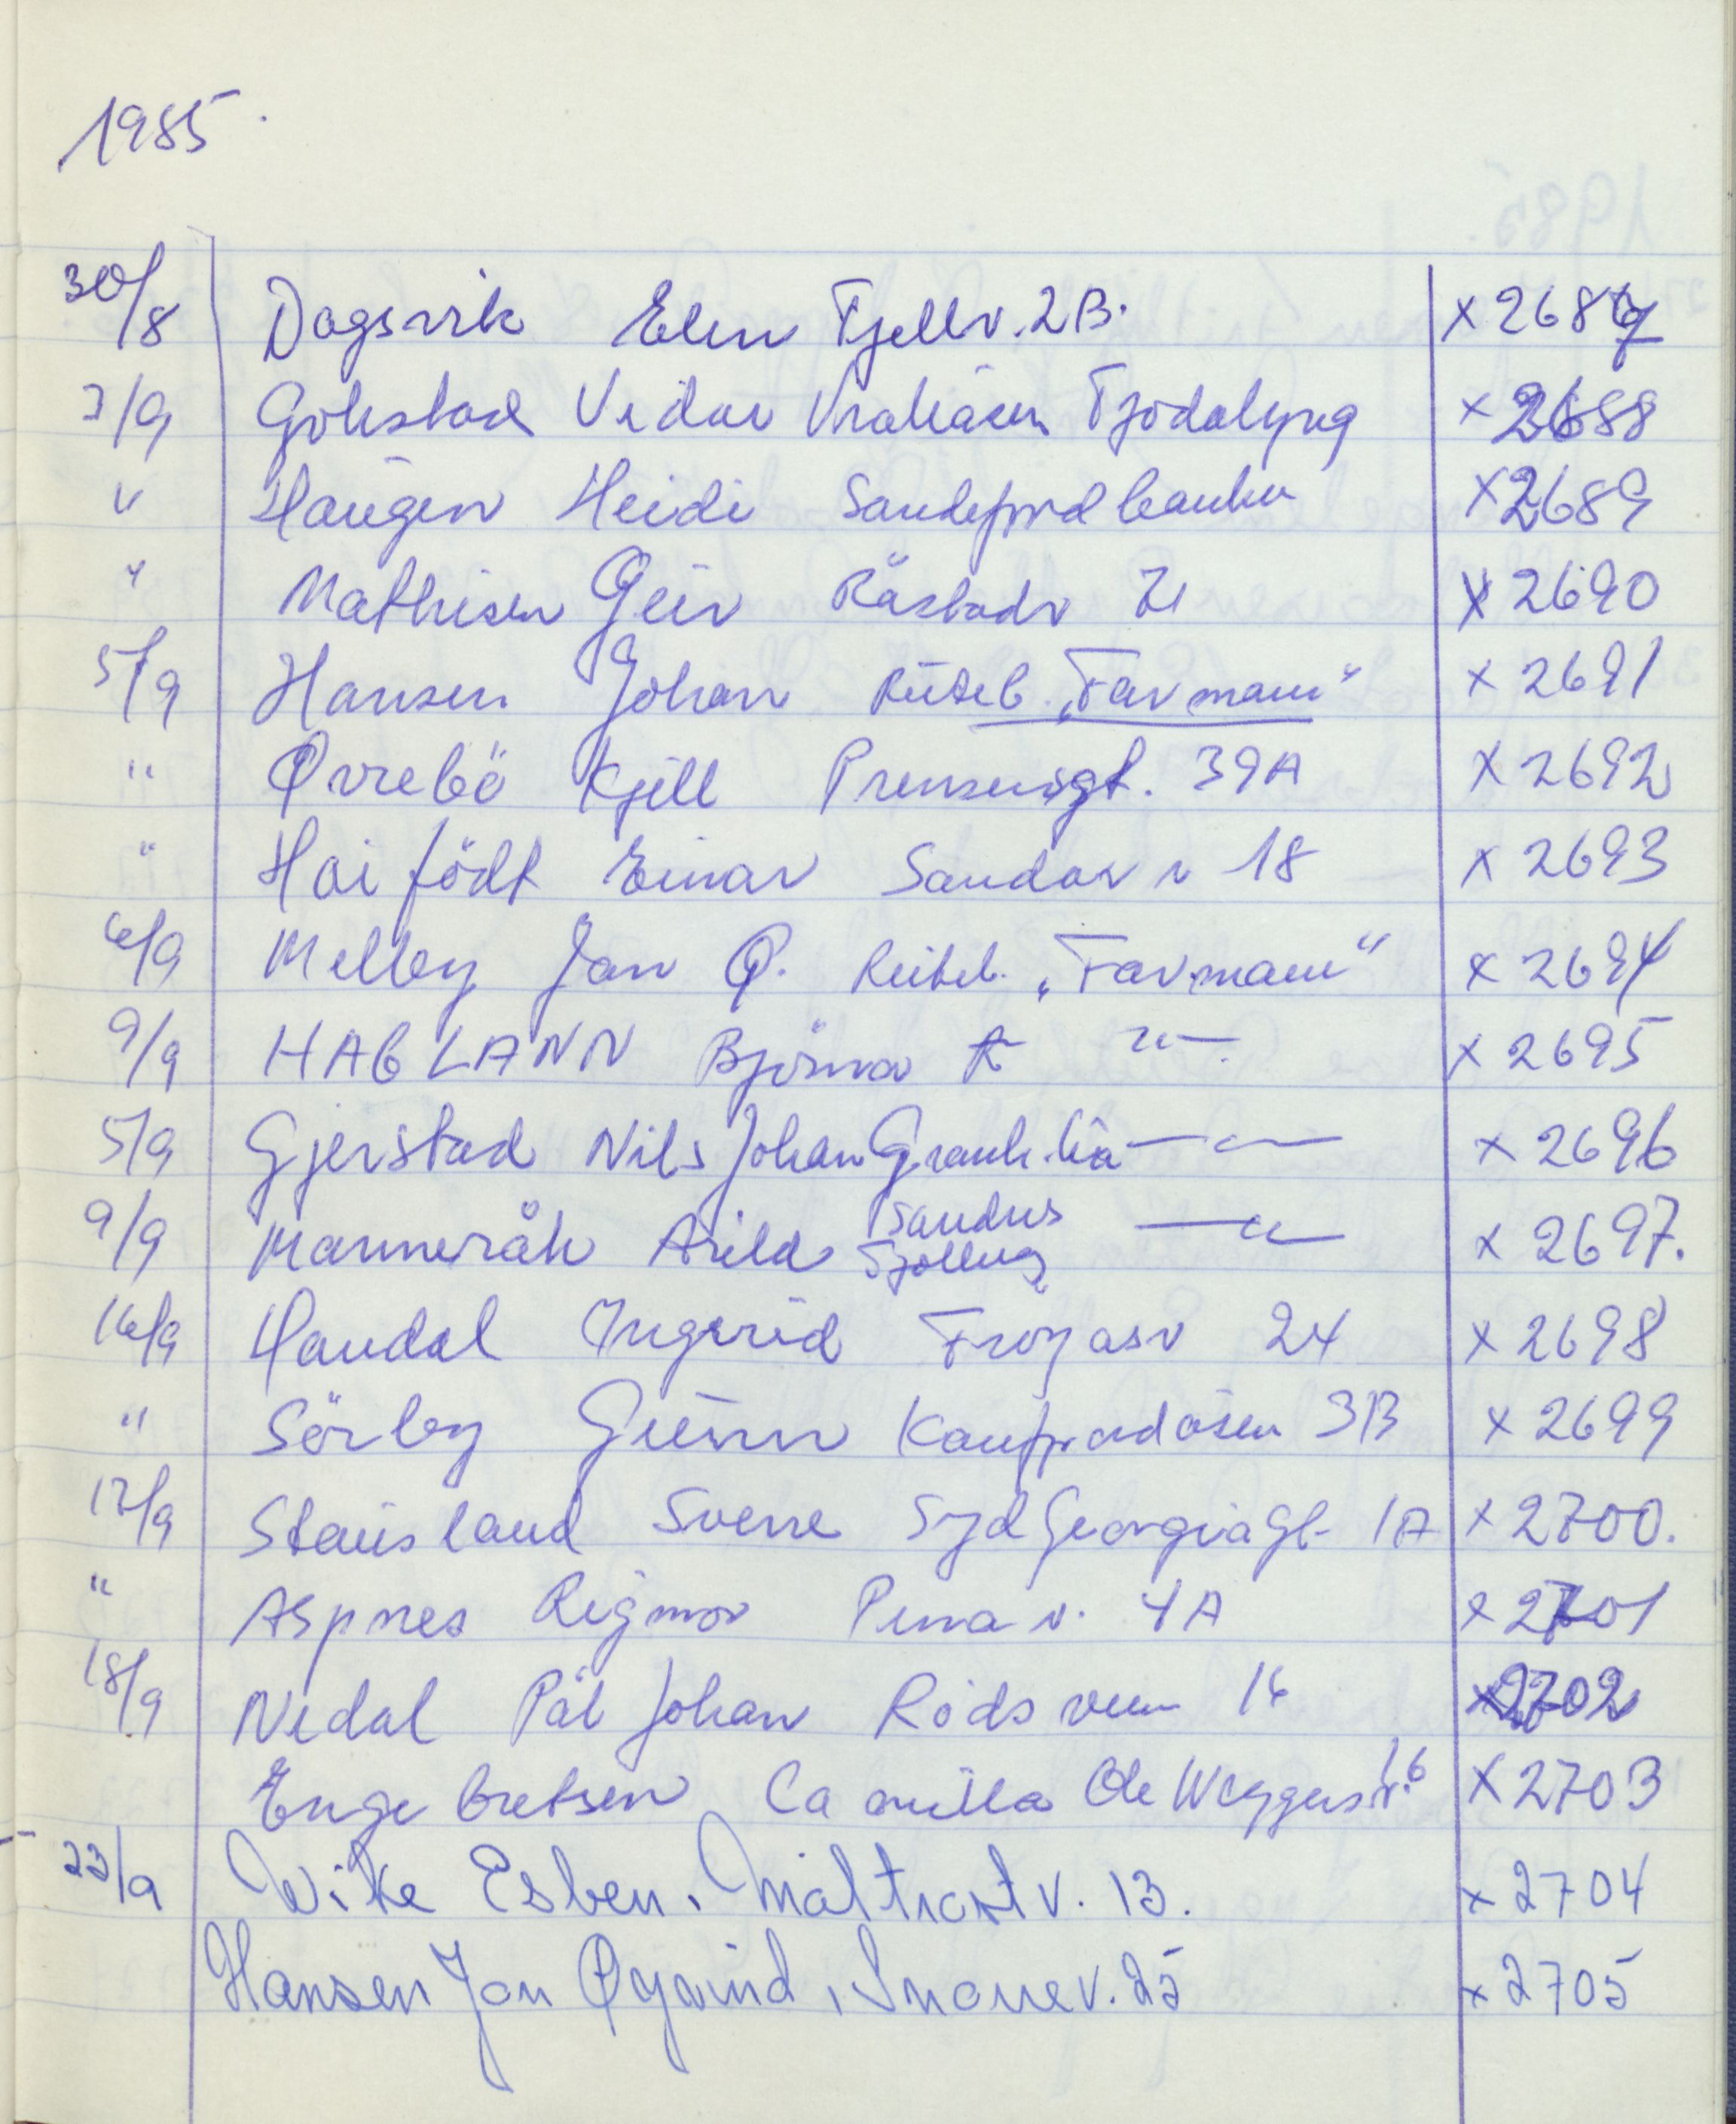 1985.
30/8 Dagsvik Elin Fjellv. 2B. x 2687
3/9 Gokstad Vidar Vrakåsen Tjodalyng x 2688
" Haugen Heidi Sandefjord banken x 2689
" Mathisen Geir Råstadv 21 x 2690
5/9 Hansen Johan Ruteb. „Farmann" x 2691
" Øvrebö Kjell Prinsensgt. 39A x 2692
" Høifödt Einar Sandar v 18 x 2693
6/9 Melby Jan Ø. Ruteb. „Farmann" x 2694
9/9 HAGLANN Björnar A — " — x 2695
5/9 Gjerstad Nils Johan Granh. lia — " — x 2696
9/9 Manneråk Arild Sandnes Tjølling — " — x 2697.
16/9 Haudal Ingerid Frøyasv 24 x 2698
" Sörby Gunn Kamfjordåsen 3B x 2699
17/9 Stausland Sverre Syd Georgiagt 1A x 2700.
" Aspnes Rigmor Peru v. 4A x 2701
18/9 Nedal Pål Johan Rødsveien 16 x 2702
Engebretsen Camilla Ole Weggersv. 16 x 2703
23/9 Wike Esben, Måltrostv. 13. x 2704
Hansen Jan Øyvind, Snorrev. 25 x 2705